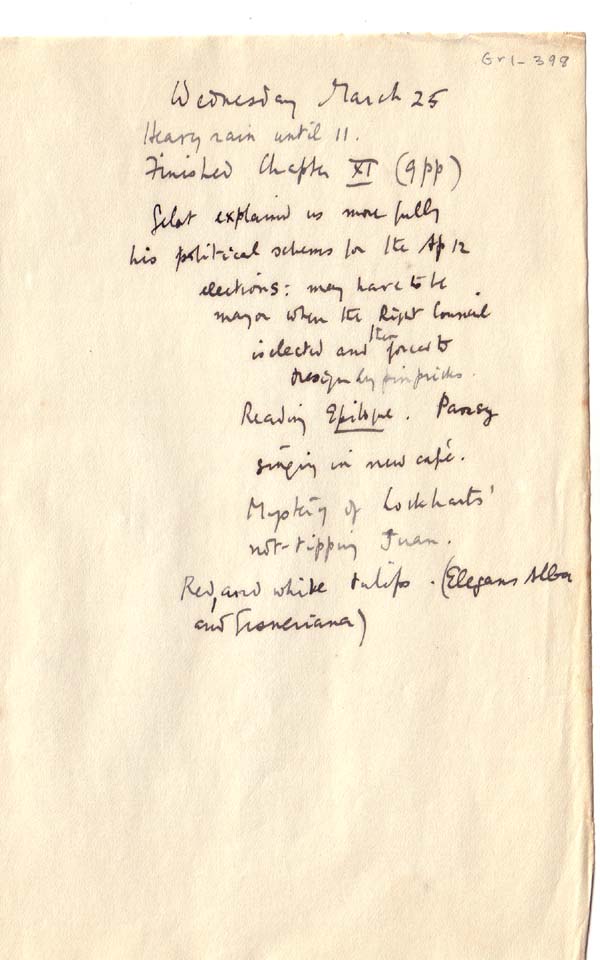 Gr1-398
Wednesday March 25
Heavy rain until 11.
Finished Chapter XI (9pp)
Gelat explained us more fully
his political schemes for the Ap 12
elections: may have to be
mayor when the Right Council
is elected and then forced to
resign by pinpricks.
Reading Epilogue. Pansy
singing in new café.
Mystery of Lockharts'
not-tipping Juan.
Red, and white tulips. (Elegans Alba
and Gesneriana)